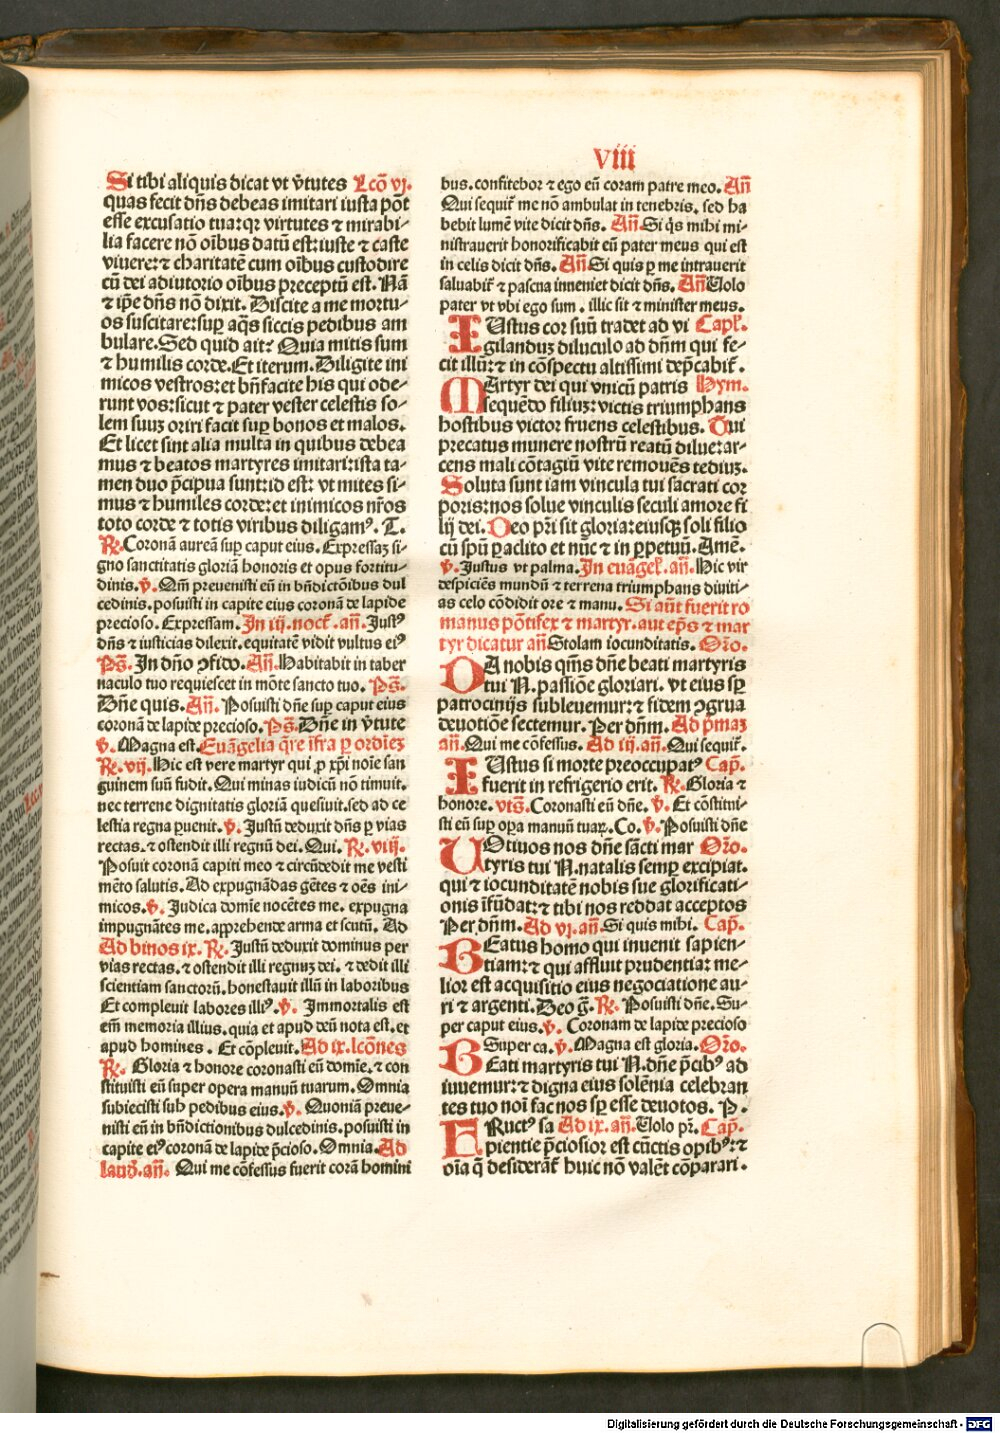 VIII
Si tibi aliquis dicat vt v̄tutes Lcō vj.
quas fecit dn̄s debeas imitari iusta pōt
esse excusatio tua: qꝛ virtutes ⁊ mirabi-
lia facere nō oībus datū est: iuste ⁊ caste
viuere: ⁊ charitatē cum oībus custodire
cū dei adiutorio oībus preceptū est. Nā
⁊ ip̄e dn̄s nō dixit. Discite a me mortu-
os suscitare: sup̄ aq̄s siccis pedibus am
bulare. Sed quid ait: Quia mitis sum
⁊ humilis corde. Et iterum. Diligite ini
micos vestros: et bn̄facite his qui ode-
runt vos: sicut ⁊ pater vester celestis so-
lem suuꝫ oriri facit sup̄ bonos et malos.
Et licet sint alia multa in quibus debea
mus ⁊ beatos martyres imitari: ista ta-
men duo p̄cipua sunt: id est: vt mites si-
mus ⁊ humiles corde: et inimicos nr̄os
toto corde ⁊ totis viribus diligamꝰ. T.
℟. Coronā aureā sup̄ caput eius. Expressaꝫ si-
gno sanctitatis gloriā honoris et opus fortitu-
dinis. v̄. Qm̄ preuenisti eū in bn̄dictōibus dul
cedinis. posuisti in capite eius coronā de lapide
precioso. Expressam. In iij. noct̄. an̄. Justꝰ
dn̄s ⁊ iusticias dilexit. equitatē vidit vultus eiꝰ
Ps̄. In dn̄o ꝯfido. An̄. Habitabit in taber
naculo tuo requiescet in mōte sancto tuo. Ps̄.
Dn̄e quis. An̄. Posuisti dn̄e sup̄ caput eius
coronā de lapide precioso. Ps̄. Dn̄e in v̄tute
v̄. Magna est. Euāgelia q̄re īfra ꝑ ordīeꝫ
℟. vij. Hic est vere martyr qui ꝓ xp̄i noīe san
guinem suū fudit. Qui minas iudicū nō timuit.
nec terrene dignitatis gloriā quesiuit. sed ad ce
lestia regna ꝑuenit. v̄. Justū deduxit dn̄s ꝑ vias
rectas. ⁊ ostendit illi regnū dei. Qui. ℟. viij.
Posuit coronā capiti meo ⁊ circūdedit me vesti
mēto salutis. Ad expugnādas gētes ⁊ oēs ini-
micos. v̄. Judica domīe nocētes me. expugna
impugnātes me. apprehende arma et scutū. Ad
Ad binos ix. ℟. Justū deduxit dominus per
vias rectas. ⁊ ostendit illi regnuꝫ dei. ⁊ dedit illi
scientiam sanctorū. honestauit illū in laboribus
Et compleuit labores illiꝰ. v̄. Immortalis est
em̄ memoria illius. quia et apud deū nota est. et
apud homines. Et cōpleuit. Ad ix. lcōnes
℟. Gloria ⁊ honore coronasti eū domīe. ⁊ con
stituisti eū super opera manuū tuarum. Omnia
subiecisti sub pedibus eius. v̄. Quoniā preue-
nisti eū in bn̄dictionibus dulcedinis. posuisti in
capite eiꝰ coronā de lapide p̄cioso. Omnia. Ad
laud̄. an̄. Qui me cōfessus fuerit corā homini
bus. confitebor ⁊ ego eū coram patre meo. An̄
Qui sequit̄ me nō ambulat in tenebris. sed ha
bebit lumē vite dicit dn̄s. An̄. Si q̄s mihi mi-
nistrauerit honorificabit eū pater meus qui est
in celis dicit dn̄s. An̄. Si quis ꝑ me intrauerit
saluabit̄ ⁊ pascua inueniet dicit dn̄s. An̄. Uolo
pater vt vbi ego sum. illic sit ⁊ minister meus.
IUstus cor suū tradet ad vi Capl̄.
gilanduꝫ diluculo ad dn̄m qui fe-
cit illū: ⁊ in cōspectu altissimi dep̄cabit̄.
MArtyr dei qui vnicū patris Hym.
sequēdo filiuꝫ: victis triumphans
hostibus victor fruens celestibus. Tui
precatus munere nostrū reatū dilue: ar-
cens mali cōtagiū vite remouēs tediuꝫ.
Soluta sunt iam vincula tui sacrati cor
poris: nos solue vinculis seculi amore fi
lij dei. Deo pr̄i sit gloria: eiusqꝫ soli filio
cū spū ꝑaclito et nūc ⁊ in ꝑpetuū. Amē.
v̄. Justus vt palma. In euāgel̄. an̄. Hic vir
despiciēs mundū ⁊ terrena triumphans diuiti-
as celo cōdidit ore ⁊ manu. Si aūt fuerit ro
manus pōtifex ⁊ martyr. aut ep̄s ⁊ mar
tyr dicatur an̄ Stolam iocunditatis. Or̄o.
DA nobis qm̄s dn̄e beati martyris
tui N. passiōe gloriari. vt eius sp̄
patrocinijs subleuemur: ⁊ fidem ꝯgrua
deuotiōe sectemur. Per dn̄m. Ad p̄maꝫ
an̄. Qui me cōfessus. Ad iij. an̄. Qui sequit̄.
IUstus si morte preoccupatꝰ Cap̄.
fuerit in refrigerio erit. ℟. Gloria ⁊
honore. vts̄. Coronasti eū dn̄e. v̄. Et cōstitui-
sti eū sup̄ oꝑa manuū tuaꝝ. Co. v̄. Posuisti dn̄e
UOtiuos nos dn̄e sāctì mar Or̄o.
tyris tui N. natalis semp̄ excipiat.
qui ⁊ iocunditatē nobis sue glorificati-
onis īfūdat: ⁊ tibi nos reddat acceptos
Per dn̄m. Ad vj. an̄. Si quis mihi. Cap̄.
BEatus homo qui inuenit sapien-
tiam: ⁊ qui affluit prudentia: me-
lior est acquisitio eius negociatione au-
ri ⁊ argenti. Deo ḡ. ℟. Posuisti dn̄e. Su-
per caput eius. v̄. Coronam de lapide precioso
Super ca. v̄. Magna est gloria. Or̄o.
BEati martyris tui N. dn̄e p̄cibꝰ ad
iuuemur: ⁊ digna eius solēnia celebran
tes tuo noī fac nos sp̄ esse deuotos. P.
FRuctꝰ sa Ad ix. an̄. Uolo pr̄. Cap̄.
pientie p̄ciosior est cūctis opibꝰ: ⁊
oīa q̄ desiderāt̄ huic nō valēt cōparari.
Digitalisierung gefördert durch die Deutsche Forschungsgemeinschaft - DFG